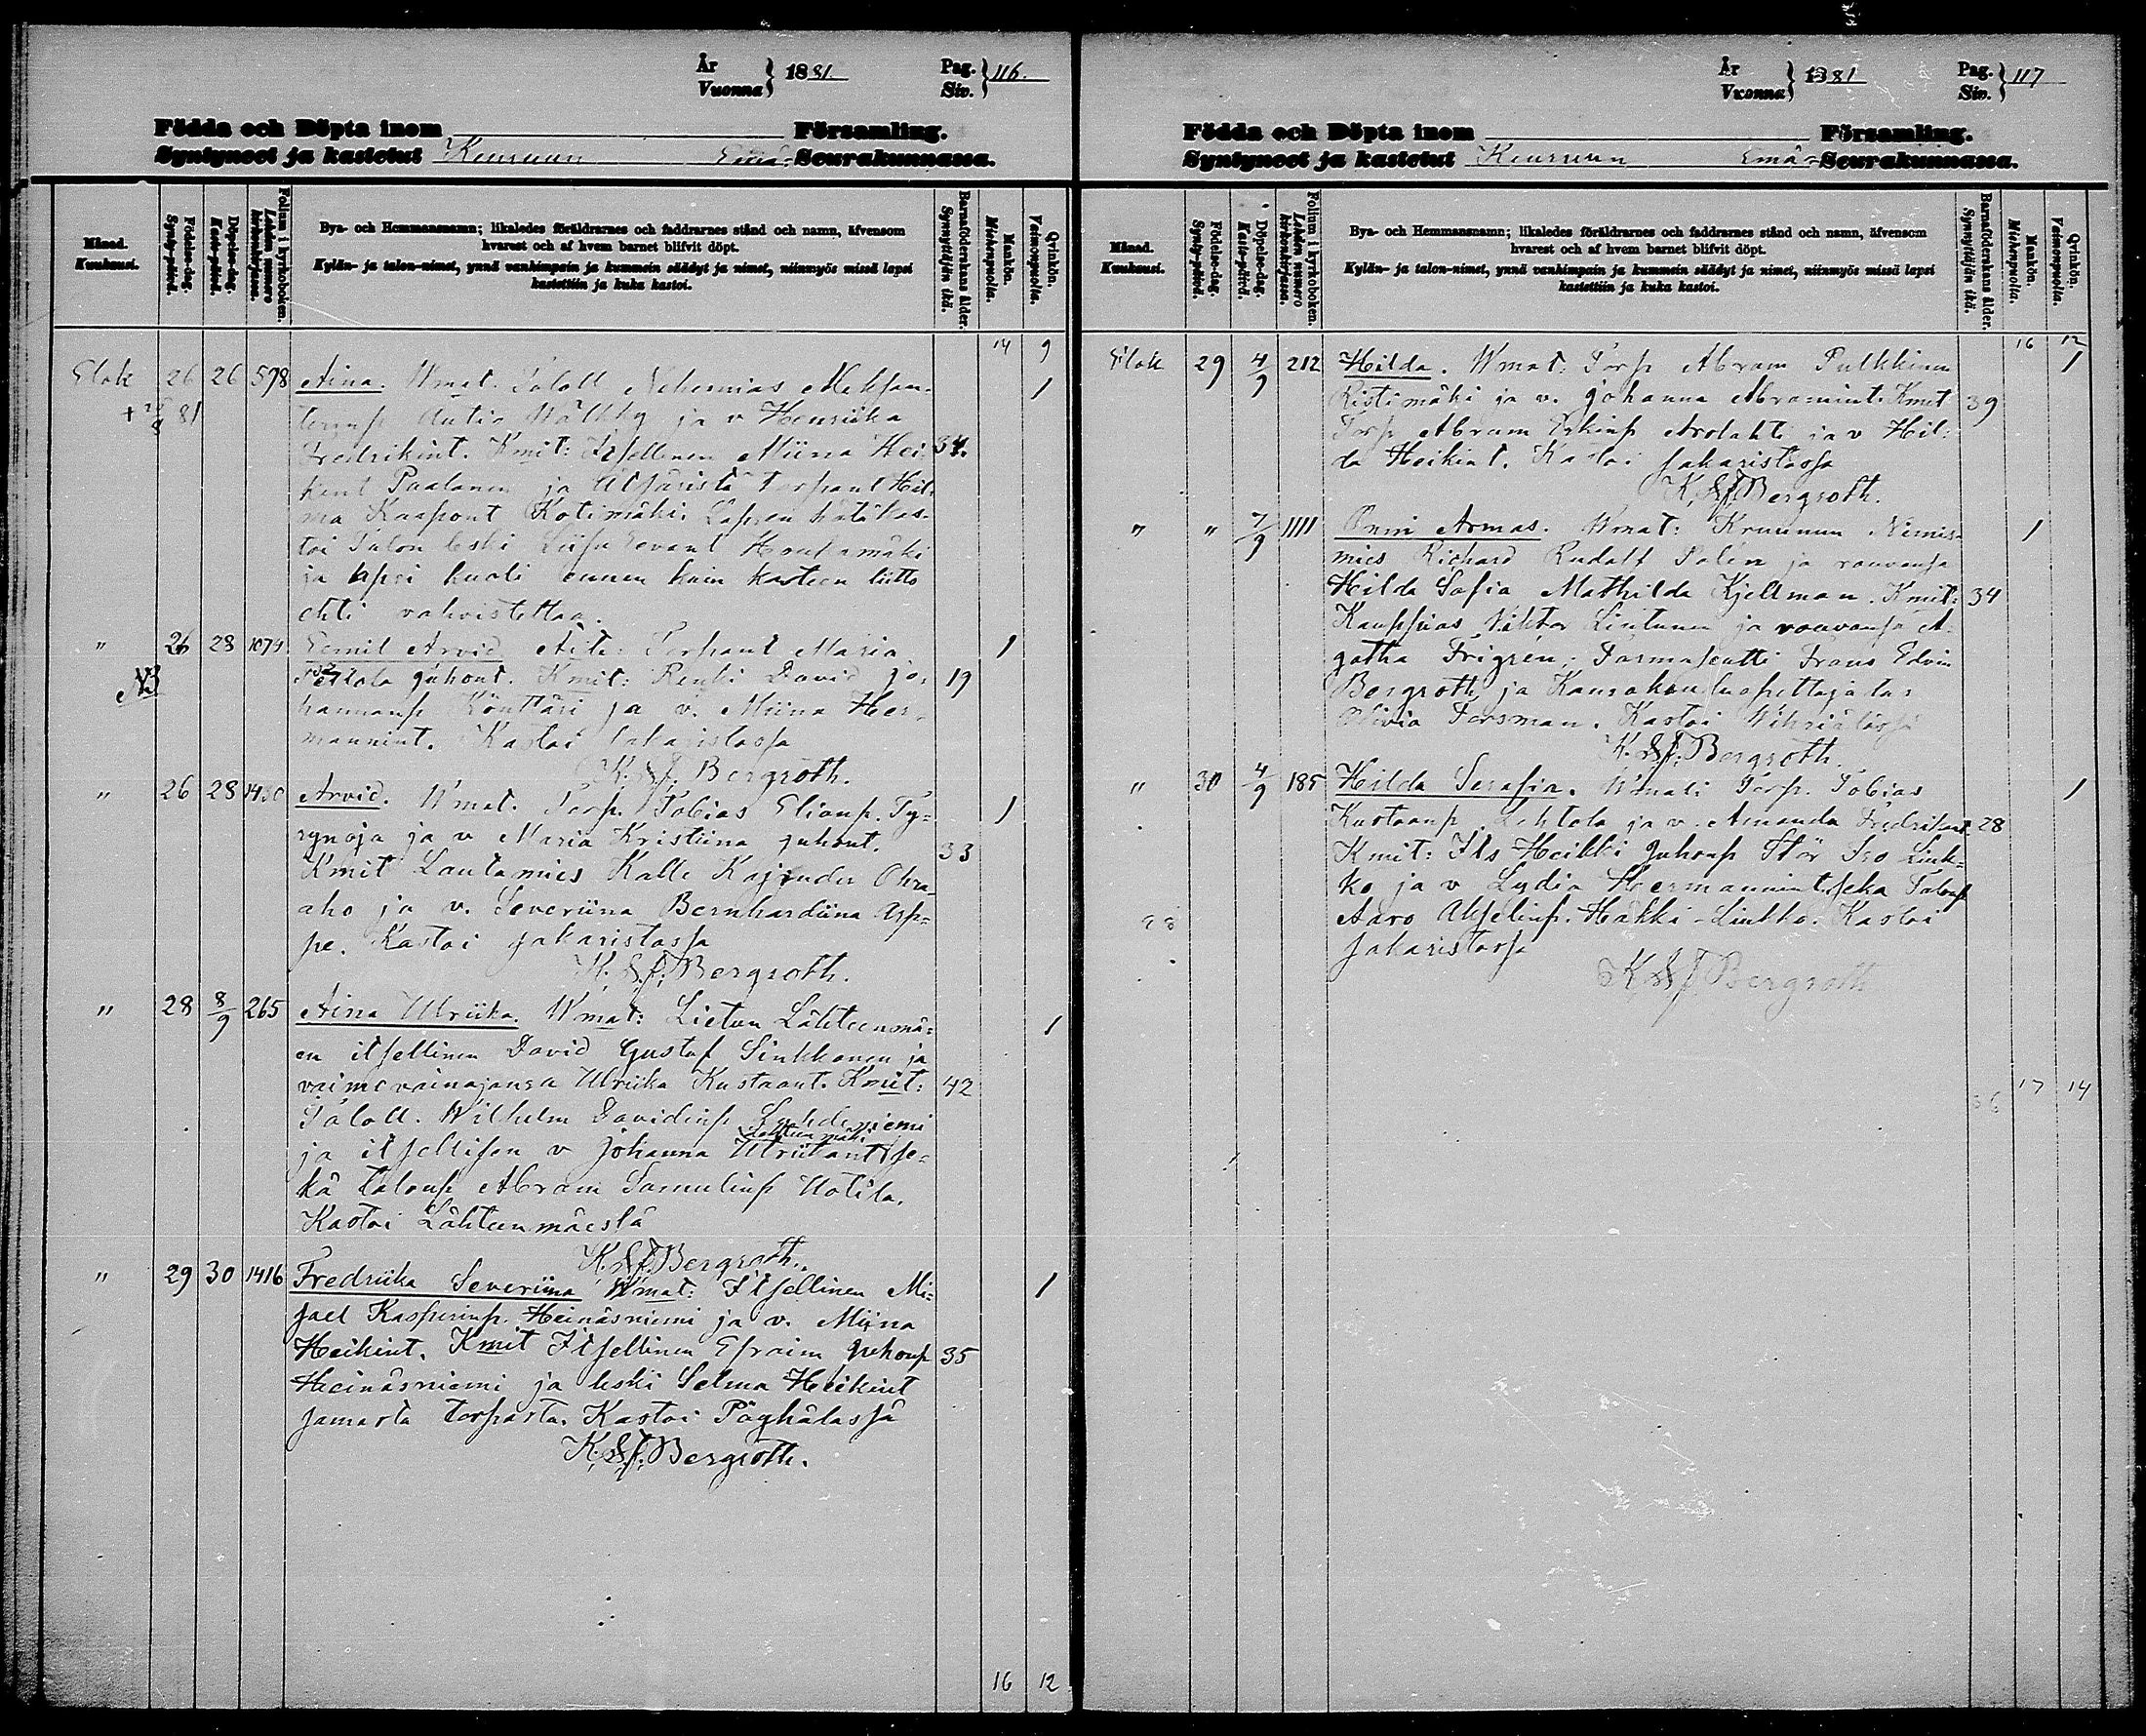 År
Vuonna } 1881.
Pag.
Siv. } 116.
Födda och Döpta inom Församling.
Syntyneet ja kastetut Keuruun Emä-Seurakunnassa.
Månad.
Kuukausi.
Födelse-dag.
Synty-päivä.
Döpelse-dag.
Kaste-päivä.
Folium i kyrkoboken.
Lehden numero kirkonkirjassa.
Bya- och Hemmansnamn; likaledes föräldrarnes och faddrarnes stånd och namn, äfvensom
hvarest och af hvem barnet blifvit döpt.
Kylän- ja talon-nimet, ynnä vanhimpain ja kummein säädyt ja nimet, niinmyös missä lapsi
kastettiin ja kuka kastoi.
Barnaföderskans ålder.
Synnyttäjän ikä.
Mankön.
Miehenpuolia.
Qvinkön.
Vaimonpuolia.
14 9
Elok 26 26 598 Aina. Wmat. Taloll Nehemias Aleksan- 1
ternp Antio Wälkky ja v Henriika
Fredrikint. Kmit: Itsellinen Miina Hei- 34.
kint Paalanen ja Ätsäristä torpant Hil-
ma Kaapont Kotimäki. Lapsen hätäkas-
toi Talon leski Liisa Eevant Houkamäki
ja lapsi kuoli ennen kuin kasteen liitto
ehti vahvistettaa.
" 26 28 1079 Eemil Arvid Äiti: Torpant Maria 1
Juhont. Kmit: Renki David Jo- 19
hannanp Könttäri ja v. Miina Her-
mannint. Kastoi Sakaristossa
K. S. J. Bergroth.
" 26 28 1450 Arvid. Wmat. Torp. Tobias Elianp. Ty- 1
rynoja ja v Maria Kristiina Juhont. 33
Kmit Lautamies Kalle Kajander Ohra-
aho ja v. Severiina Bernhardiina Asp-
pe. Kastoi Sakaristossa
K. S. J. Bergroth.
" 28 8/9 265 Aina Ulriika. Wmat: Lietun Lähteenmä- 1
en itsellinen David Gustaf Sinkkonen ja
vaimovainajansa Ulriika Kustaant. Kmit: 42
Taloll. Wilhelm Davidinp
ja itsellisen v Johanna Ulriikant se-
Lähteenmäki
kä talonp Abram Samulinp Uotila.
Kastoi Lähteenmäestä
K. S. J. Bergroth.
" 29 30 1416 Fredriika Severiina Wmat: Itsellinen Mi- 1
jael Kasperinp. Heinäsniemi ja v. Miina
Heikint. Kmit Itsellinen Efraim Juhonp 35
Heinäsniemi ja leski Selma Heikint
samasta torpasta. Kastoi Pöyhölässä
K. S. J. Bergroth.
16 12
År
Vuonna } 1881
Pag.
Siv. } 117
Födda och Döpta inom Församling.
Syntyneet ja kastetut Keuruun Emä-Seurakunnassa.
Månad.
Kuukausi.
Födelse-dag.
Synty-päivä.
Döpelse-dag.
Kaste-päivä.
Folium i kyrkoboken.
Lehden numero kirkonkirjassa.
Bya- och Hemmansnamn; likaledes föräldrarnes och faddrarnes stånd och namn, äfvensom
hvarest och af hvem barnet blifvit döpt.
Kylän- ja talon-nimet, ynnä vanhimpain ja kummein säädyt ja nimet, niinmyös missä lapsi
kastettiin ja kuka kastoi.
Barnaföderskans ålder.
Synnyttäjän ikä.
Mankön.
Miehenpuolia.
Qvinkön.
Vaimonpuolia.
16 12
Elok 29 4/9 212 Hilda. Wmat: Torp Abram Pulkkinen 1
Ristimäki ja v. Johanna Abramint. Kmit 39
Torp Abram Erkinp Arolahti ja v Hil-
da Heikint. Kastoi Sakaristossa
K. S. J. Bergroth.
" " 7/9 1111 Onni Armas. Wmat: Kruunun Nimis- 1
mies Richard Rudolf Palén ja rouvansa
Hilda Sofia Mathilda Kjellman. Kmit: 34
Kauppias Viktor Lintunen ja rouvansa A-
gatha Frigrén; Farmaseutti Frans Edvin
Bergroth, ja Kansakoulunopettajatar
Olivia Forsman. Kastoi Wihriälässä
K. S. J. Bergroth.
" 30 4/9 185 Hilda Serafia. Wmat: Torp. Tobias 1
Kustaanp Lehtola ja v. Amanda Fredrikint 28
Kmit: Its Heikki Juhonp Stör Iso Liuk-
ko ja v Lydia Hermannint. seka Talonp
Aaro Akselinp. Häkki-Liukko. Kastoi
Sakaristossa
K S J Bergroth
17 14